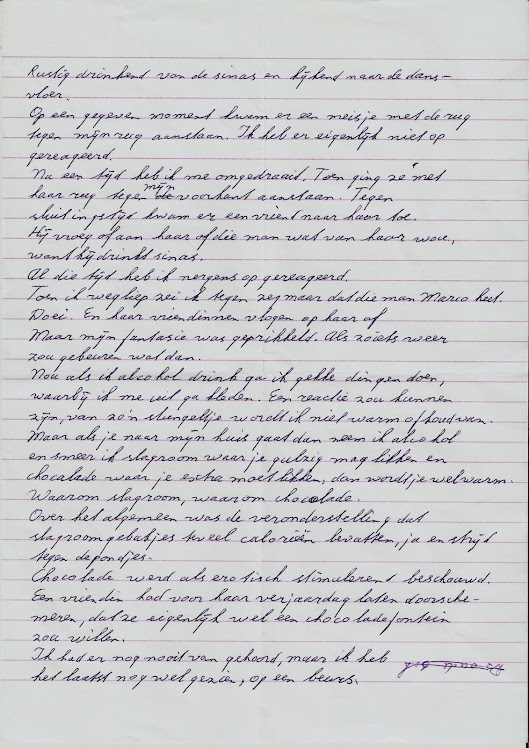 Rustig drinkend van de sinas en kijkend naar de dans-
vloer.
Op een gegeven moment kwam er een meisje met de rug
tegen mijn rug aanstaan. Ik heb er eigenlijk niet op
gereageerd.
Na een tijd heb ik me omgedraaid. Toen ging ze met
haar rug tegen mijn voorkant aanstaan. Tegen
sluitingstijd kwam er een vriend naar haar toe.
Hij vroeg of aan haar of die man wat van haar wou,
want hij drinkt sinas.
Al die tijd heb ik nergens op gereageerd.
Toen ik wegliep zei ik tegen zeg maar dat die man Marco heet.
Doei. En haar vriendinnen vlogen op haar af
Maar mijn fantasie was geprikkeld. Als zoiets weer
zou gebeuren wat dan.
Nou als ik alcohol drink ga ik gekke dingen doen,
waarbij ik me uit ga kleden. Een reactie zou kunnen
zijn, van zo'n slungeltje wordt ik niet warm of koud van.
Maar als je naar mijn huis gaat dan neem ik alcohol
en smeer ik slagroom waar je gulzig mag likken en
chocalade waar je extra moet likken, dan wordt je wel warm.
Waarom slagroom, waarom chocolade.
Over het algemeen was de veronderstelling dat
slagroomgebakjes teveel calorieën bevatten, ja en strijd
tegen de pondjes.
Chocolade werd als erotisch stimulerend beschouwd.
Een vriendin had voor haar verjaardag laten doorsche-
meren, dat ze eigenlijk wel een chocoladefontein
zou willen.
Ik had er nog nooit van gehoord, maar ik heb
het laatst nog wel gezien, op een beurs.